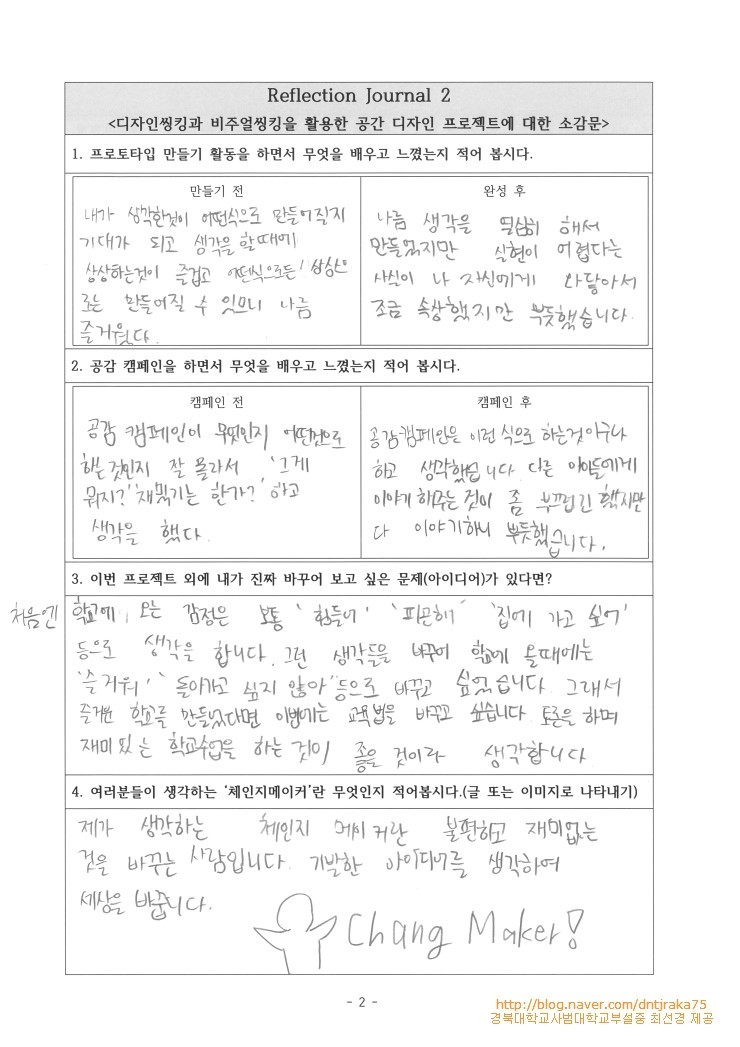 Reflection Journal 2
<디자인씽킹과 비주얼씽킹을 활용한 공간 디자인 프로젝트에 대한 소감문>
1. 프로토타입 만들기 활동을 하면서 무엇을 배우고 느꼈는지 적어 봅시다.
만들기 전
내가 생각한것이 어떤식으로 만들어질지
기대가 되고 생각을 할때에
상상하는것이 즐겁고 어떤식으로든 상상으
로는 만들어질 수 있으니 나름
즐거웠다.
완성 후
나름 생각을 열심히 해서
만들었지만 실현이 어렵다는
사실이 나 자신에게 와닿아서
조금 속상했지만 뿌듯했습니다.
2. 공감 캠페인을 하면서 무엇을 배우고 느꼈는지 적어 봅시다.
캠페인 전
공감 캠페인이 무엇인지 어떤것으로
하는것인지 잘 몰라서 '그게
뭐지?' '재밌기는 한가?' 하고
생각을 했다.
캠페인 후
공감캠페인은 이런 식으로 하는것이구나
하고 생각했습니다 다른 아이들에게
이야기 해주는 것이 좀 부끄럽긴 했지만
다 이야기하니 뿌듯했습니다.
3. 이번 프로젝트 외에 내가 진짜 바꾸어 보고 싶은 문제(아이디어)가 있다면?
처음엔 학교에 오는 감정은 보통 '힘들어' '피곤해' '집에 가고 싶어'
등으로 생각을 합니다. 그런 생각들을 바꾸어 학교에 올때에는
'즐거워' '돌아가고 싶지 않아' 등으로 바꾸고 싶었습니다. 그래서
즐거운 학교를 만들었다면 이번에는 교육법을 바꾸고 싶습니다. 토론을 하며
재미있는 학교수업을 하는 것이 좋을 것이라 생각합니다
4. 여러분들이 생각하는 '체인지메이커'란 무엇인지 적어봅시다.(글 또는 이미지로 나타내기)
제가 생각하는 체인지 메이커란 불편하고 재미없는
것을 바꾸는 사람입니다. 기발한 아이디어를 생각하여
세상을 바꿉니다.
Chang Maker!
- 2 -
http://blog.naver.com/dntjraka75
경북대학교사범대학교부설중 최선경 제공